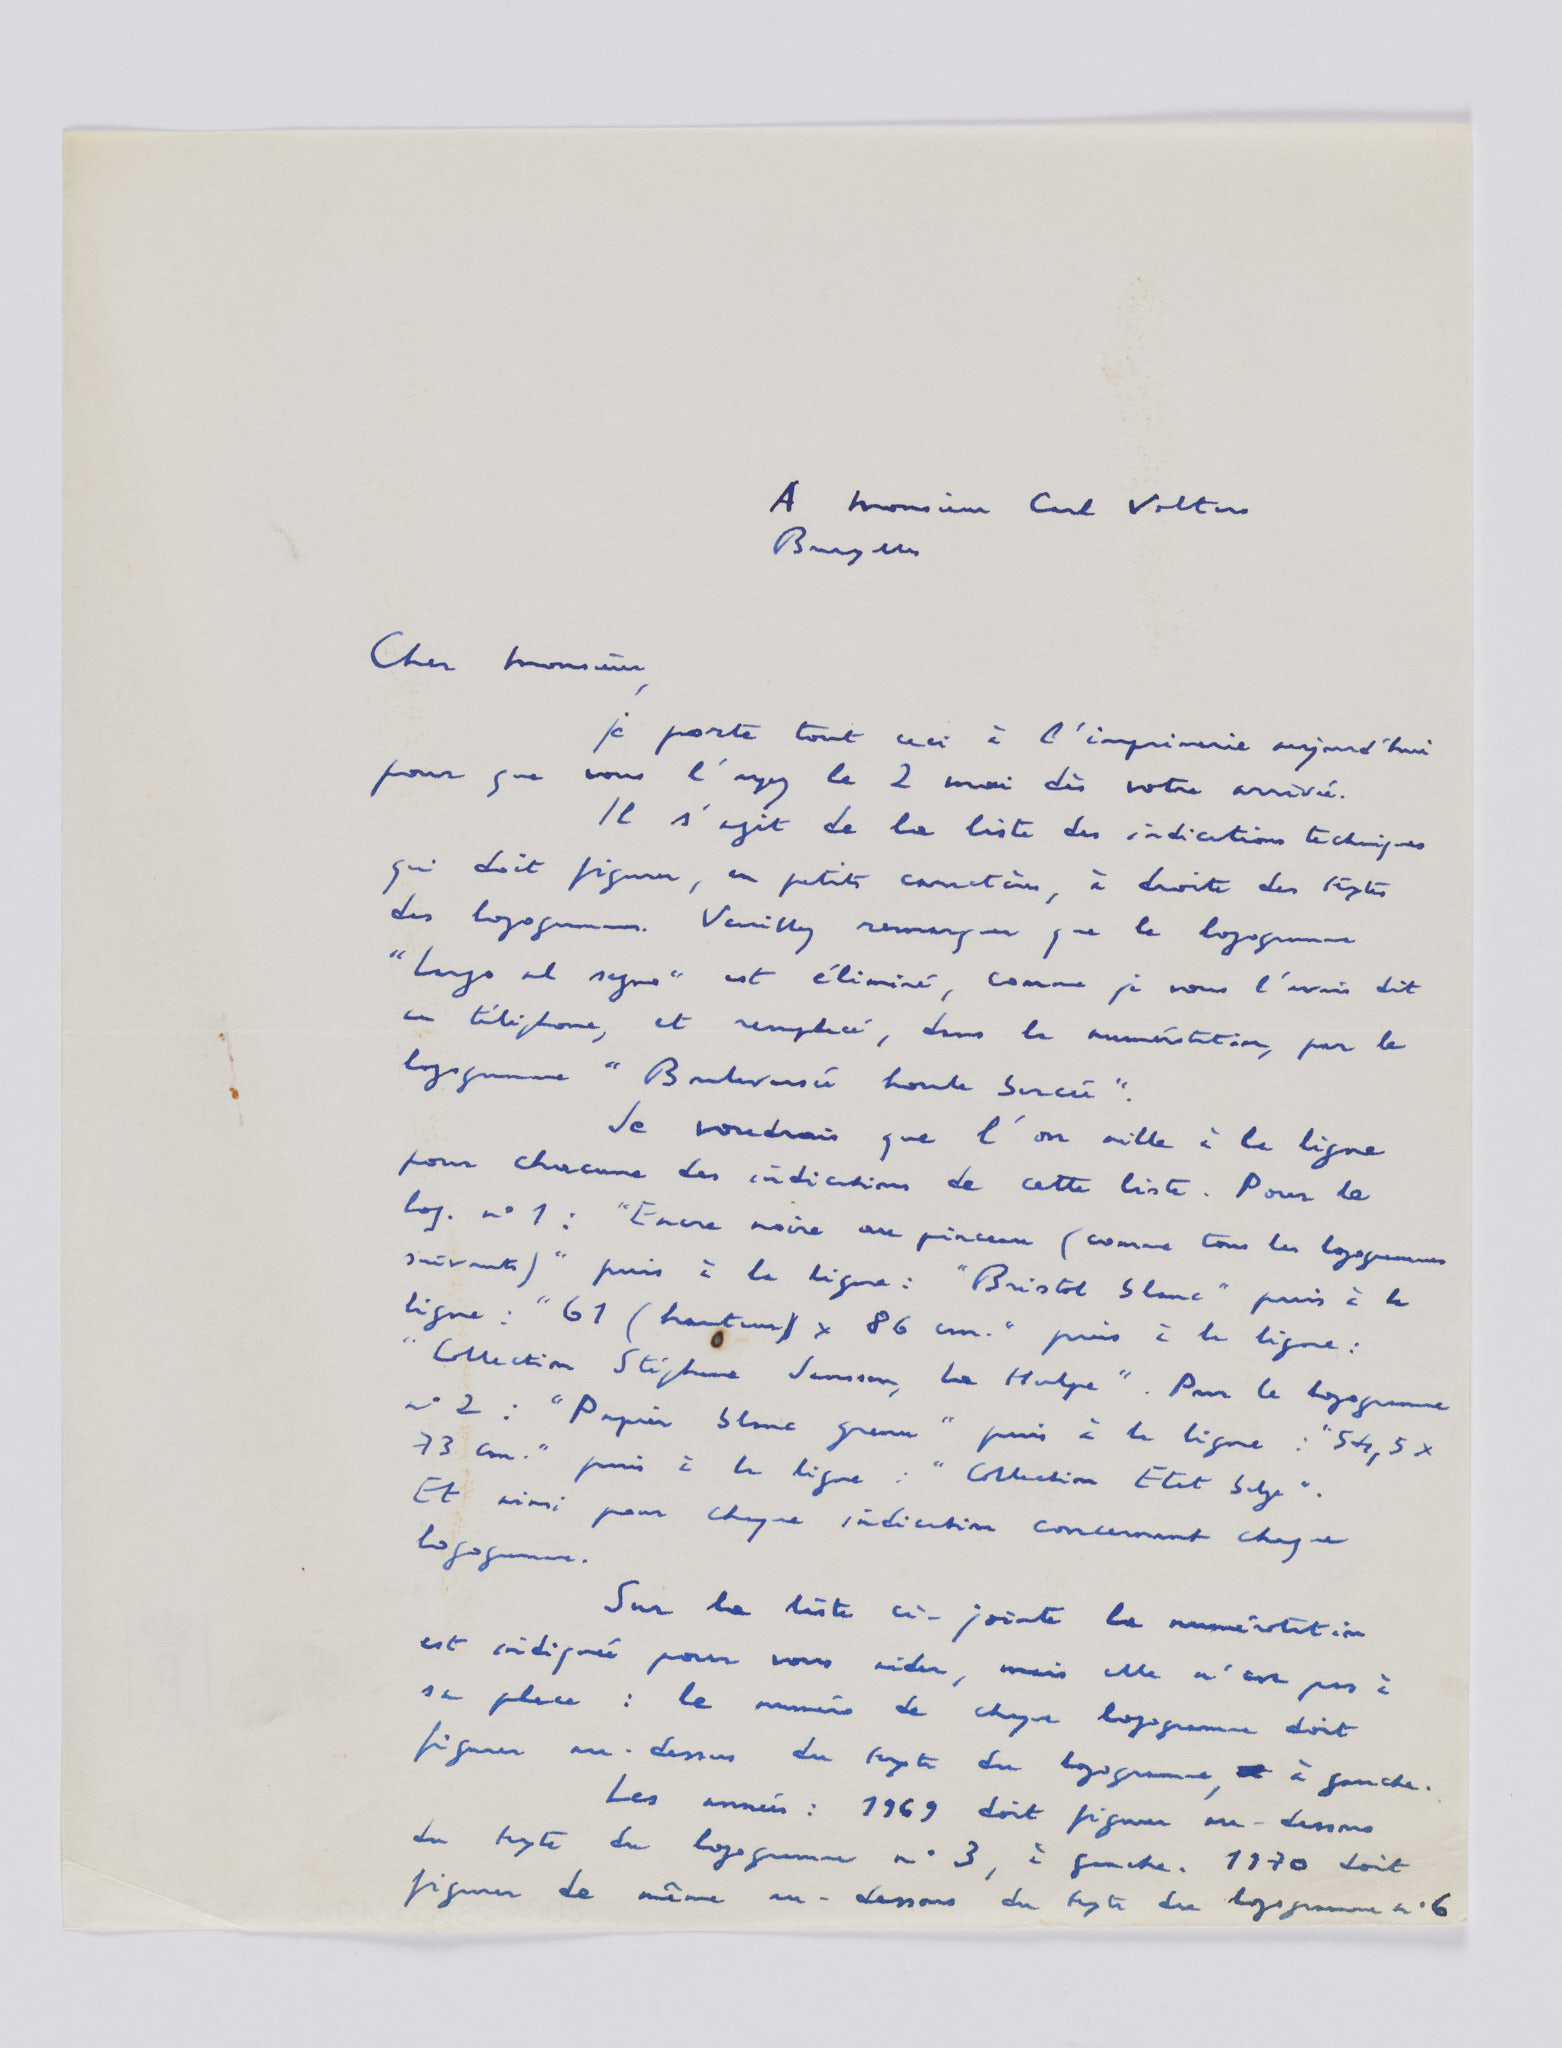 A Monsieur Carl Volters
Bruxelles
Cher Monsieur,
je porte tout ceci à l'imprimerie aujourd'hui
pour que vous l'ayez le 2 mai dès votre arrivée.
Il s'agit de la liste des indications techniques
qui doit figurer, en petits caractères, à droite des textes
des logogrammes. Veuillez remarquer que le logogramme
"Largo al segno" est éliminé, comme je vous l'avais dit
au téléphone, et remplacé, dans la numérotation, par le
logogramme "Bouleversée houle bercée".
Je voudrais que l'on aille à la ligne
pour chacune des indications de cette liste. Pour le
log. n° 1 : "Encre noire au pinceau (comme tous les logogrammes
suivants)" puis à la ligne : "Bristol blanc" puis à la
ligne : "61 (hauteur) x 86 cm." puis à la ligne :
"Collection Stéphane Janssen, La Hulpe". Pour le logogramme
n° 2 : "Papier blanc grenu" puis à la ligne : "54,5 x
73 cm." puis à la ligne : "Collection Etat belge".
Et ainsi pour chaque indication concernant chaque
logogramme.
Sur la liste ci-jointe la numérotation
est indiquée pour vous aider, mais elle n'est pas à
sa place : le numéro de chaque logogramme doit
figurer au-dessus du texte du logogramme, à gauche.
Les années : 1969 doit figurer au-dessous
du texte du logogramme n° 3, à gauche. 1970 doit
figurer de même au-dessous du texte du logogramme n° 6